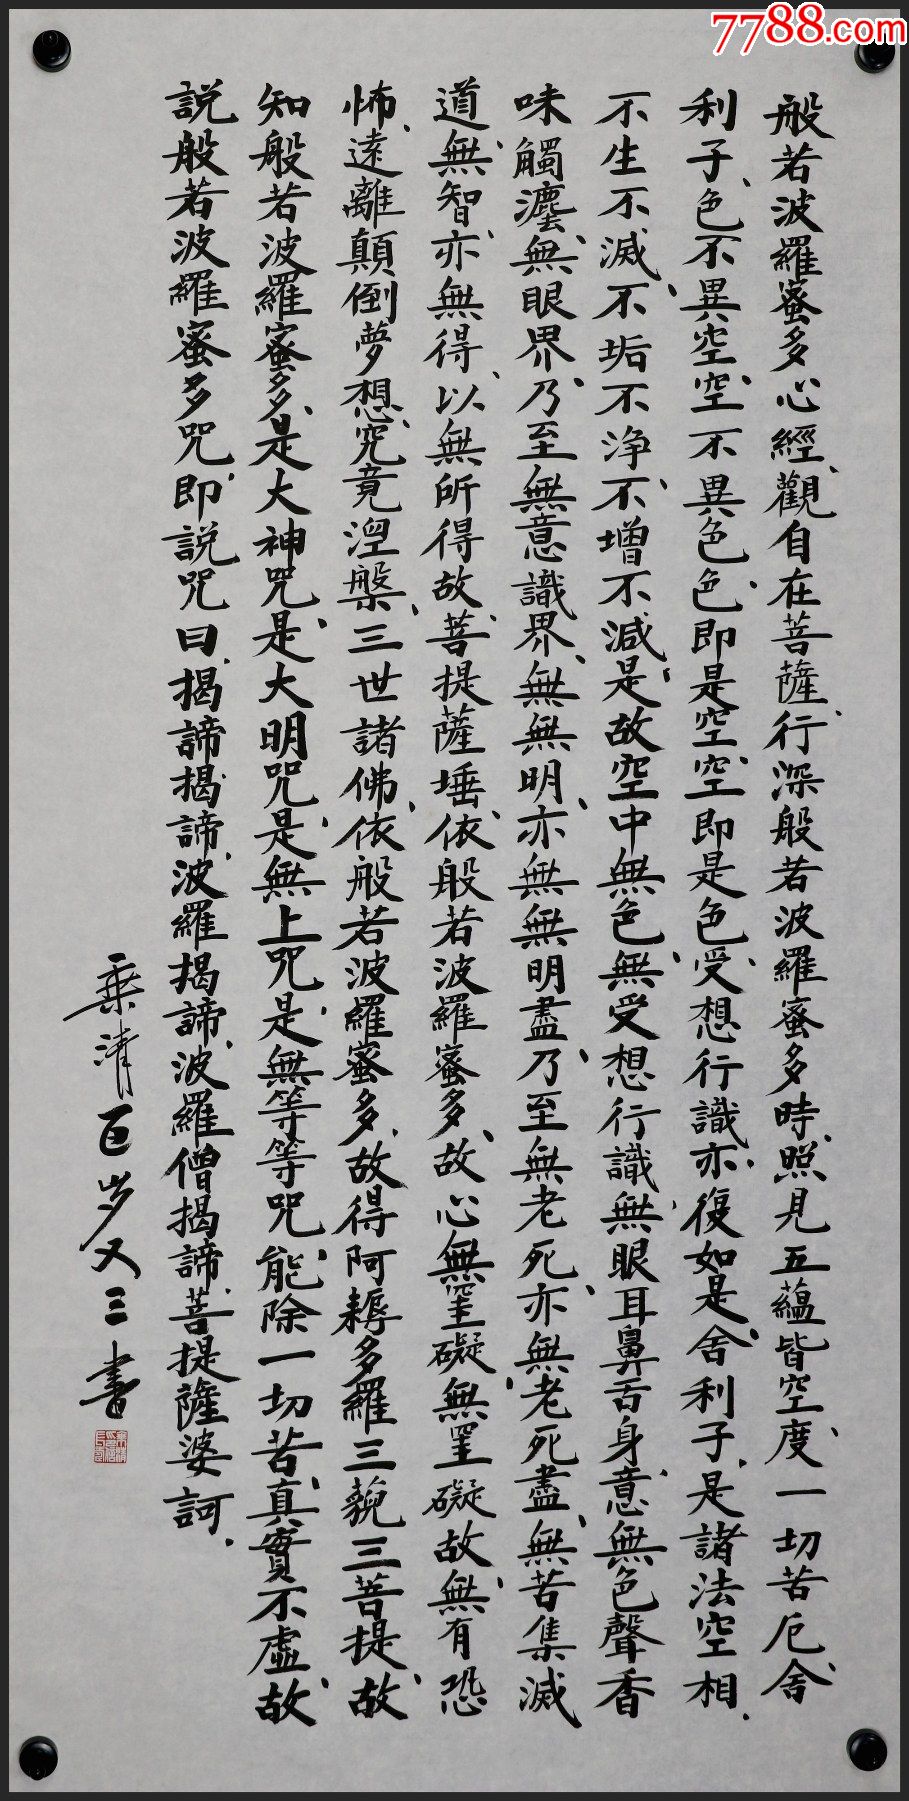 7788.com
般若波羅蜜多心經、觀自在菩薩、行深般若波羅蜜多時、照見五蘊皆空、度一切苦厄、舍
利子、色不異空、空不異色、色即是空、空即是色、受想行識、亦復如是、舍利子、是諸法空相、
不生不滅、不垢不净、不增不減、是故空中無色、無受想行識、無眼耳鼻舌身意、無色聲香
味觸塵、無眼界、乃至無意識界、無無明、亦無無明盡、乃至無老死、亦無老死盡、無苦集滅
道、無智亦無得、以無所得故、菩提薩埵、依般若波羅蜜多、故心無罣礙無罣礙故、無有恐
怖、遠離顛倒夢想、究竟涅槃、三世諸佛、依般若波羅蜜多、故得阿耨多羅三藐三菩提、故
知般若波羅蜜多、是大神咒、是大明咒、是無上咒、是無等等咒、能除一切苦、真實不虛、故
説般若波羅蜜多咒、即説咒曰、揭諦揭諦、波羅揭諦、波羅僧揭諦、菩提薩婆訶、
乘清百岁又三書